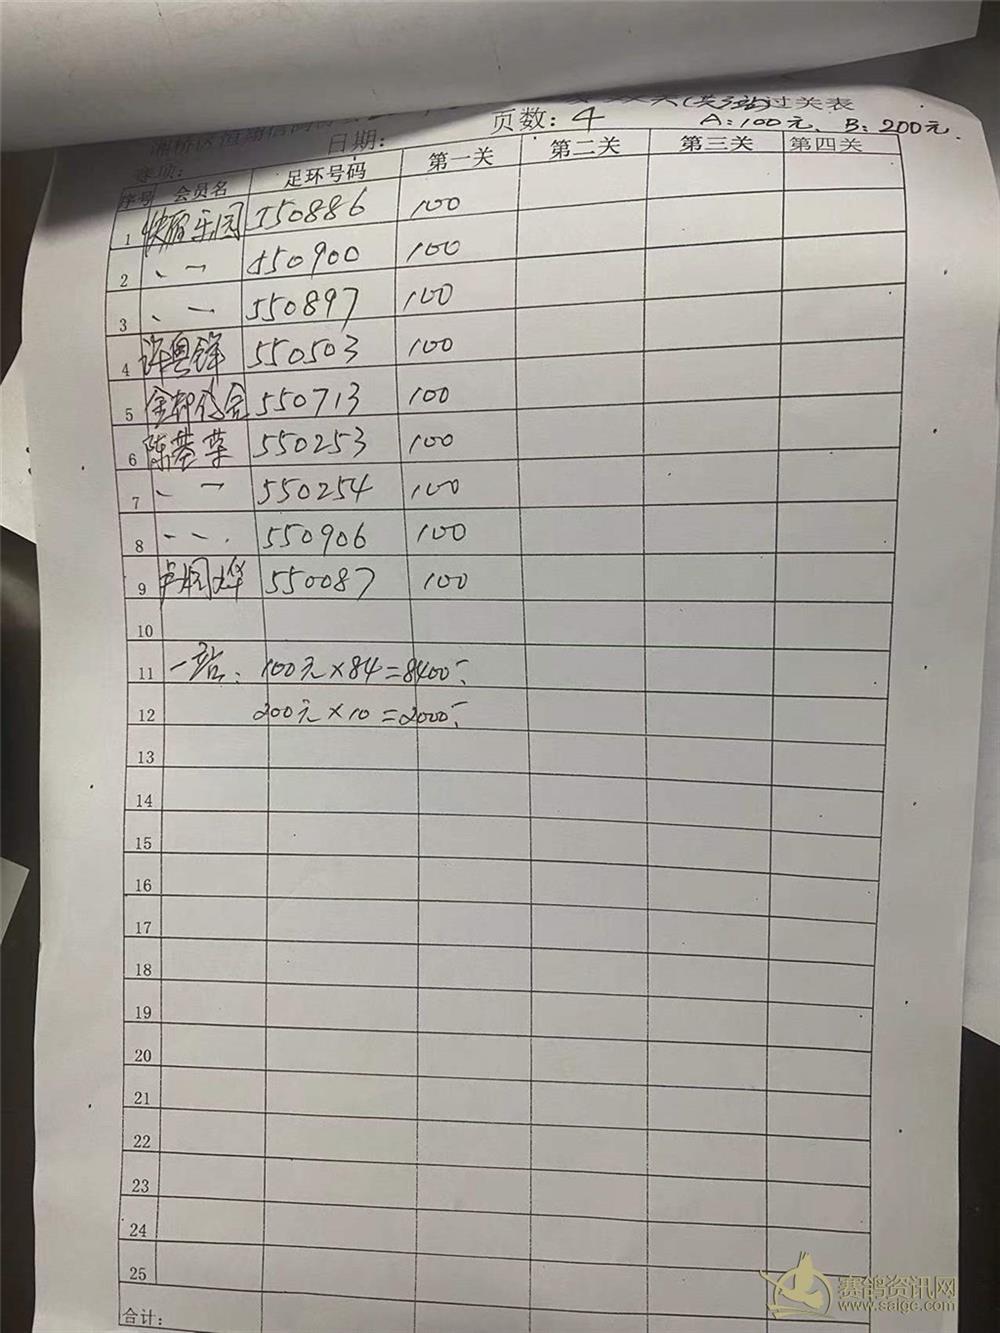 (共3站)过关表
页数: 4 A:100元、B:200元.
湘桥区 信鸽
赛项: 日期:
序号 会员名 足环号码 第一关 第二关 第三关 第四关
1 乐园 550886 100
2 、一 550900 100
3 、一 550897 100
4 许粤锋 550503 100
5 550713 100
6 陈基荣 550253 100
7 、一 550254 100
8 、一. 550906 100
9 卢润烨 550087 100
10
11 一站: 100元×84=8400.-
12 200元×10=2000.-
13
14
15
16
17
18
19
20
21
22
23
24
25
合计:
赛鸽资讯网
www.saigc.com